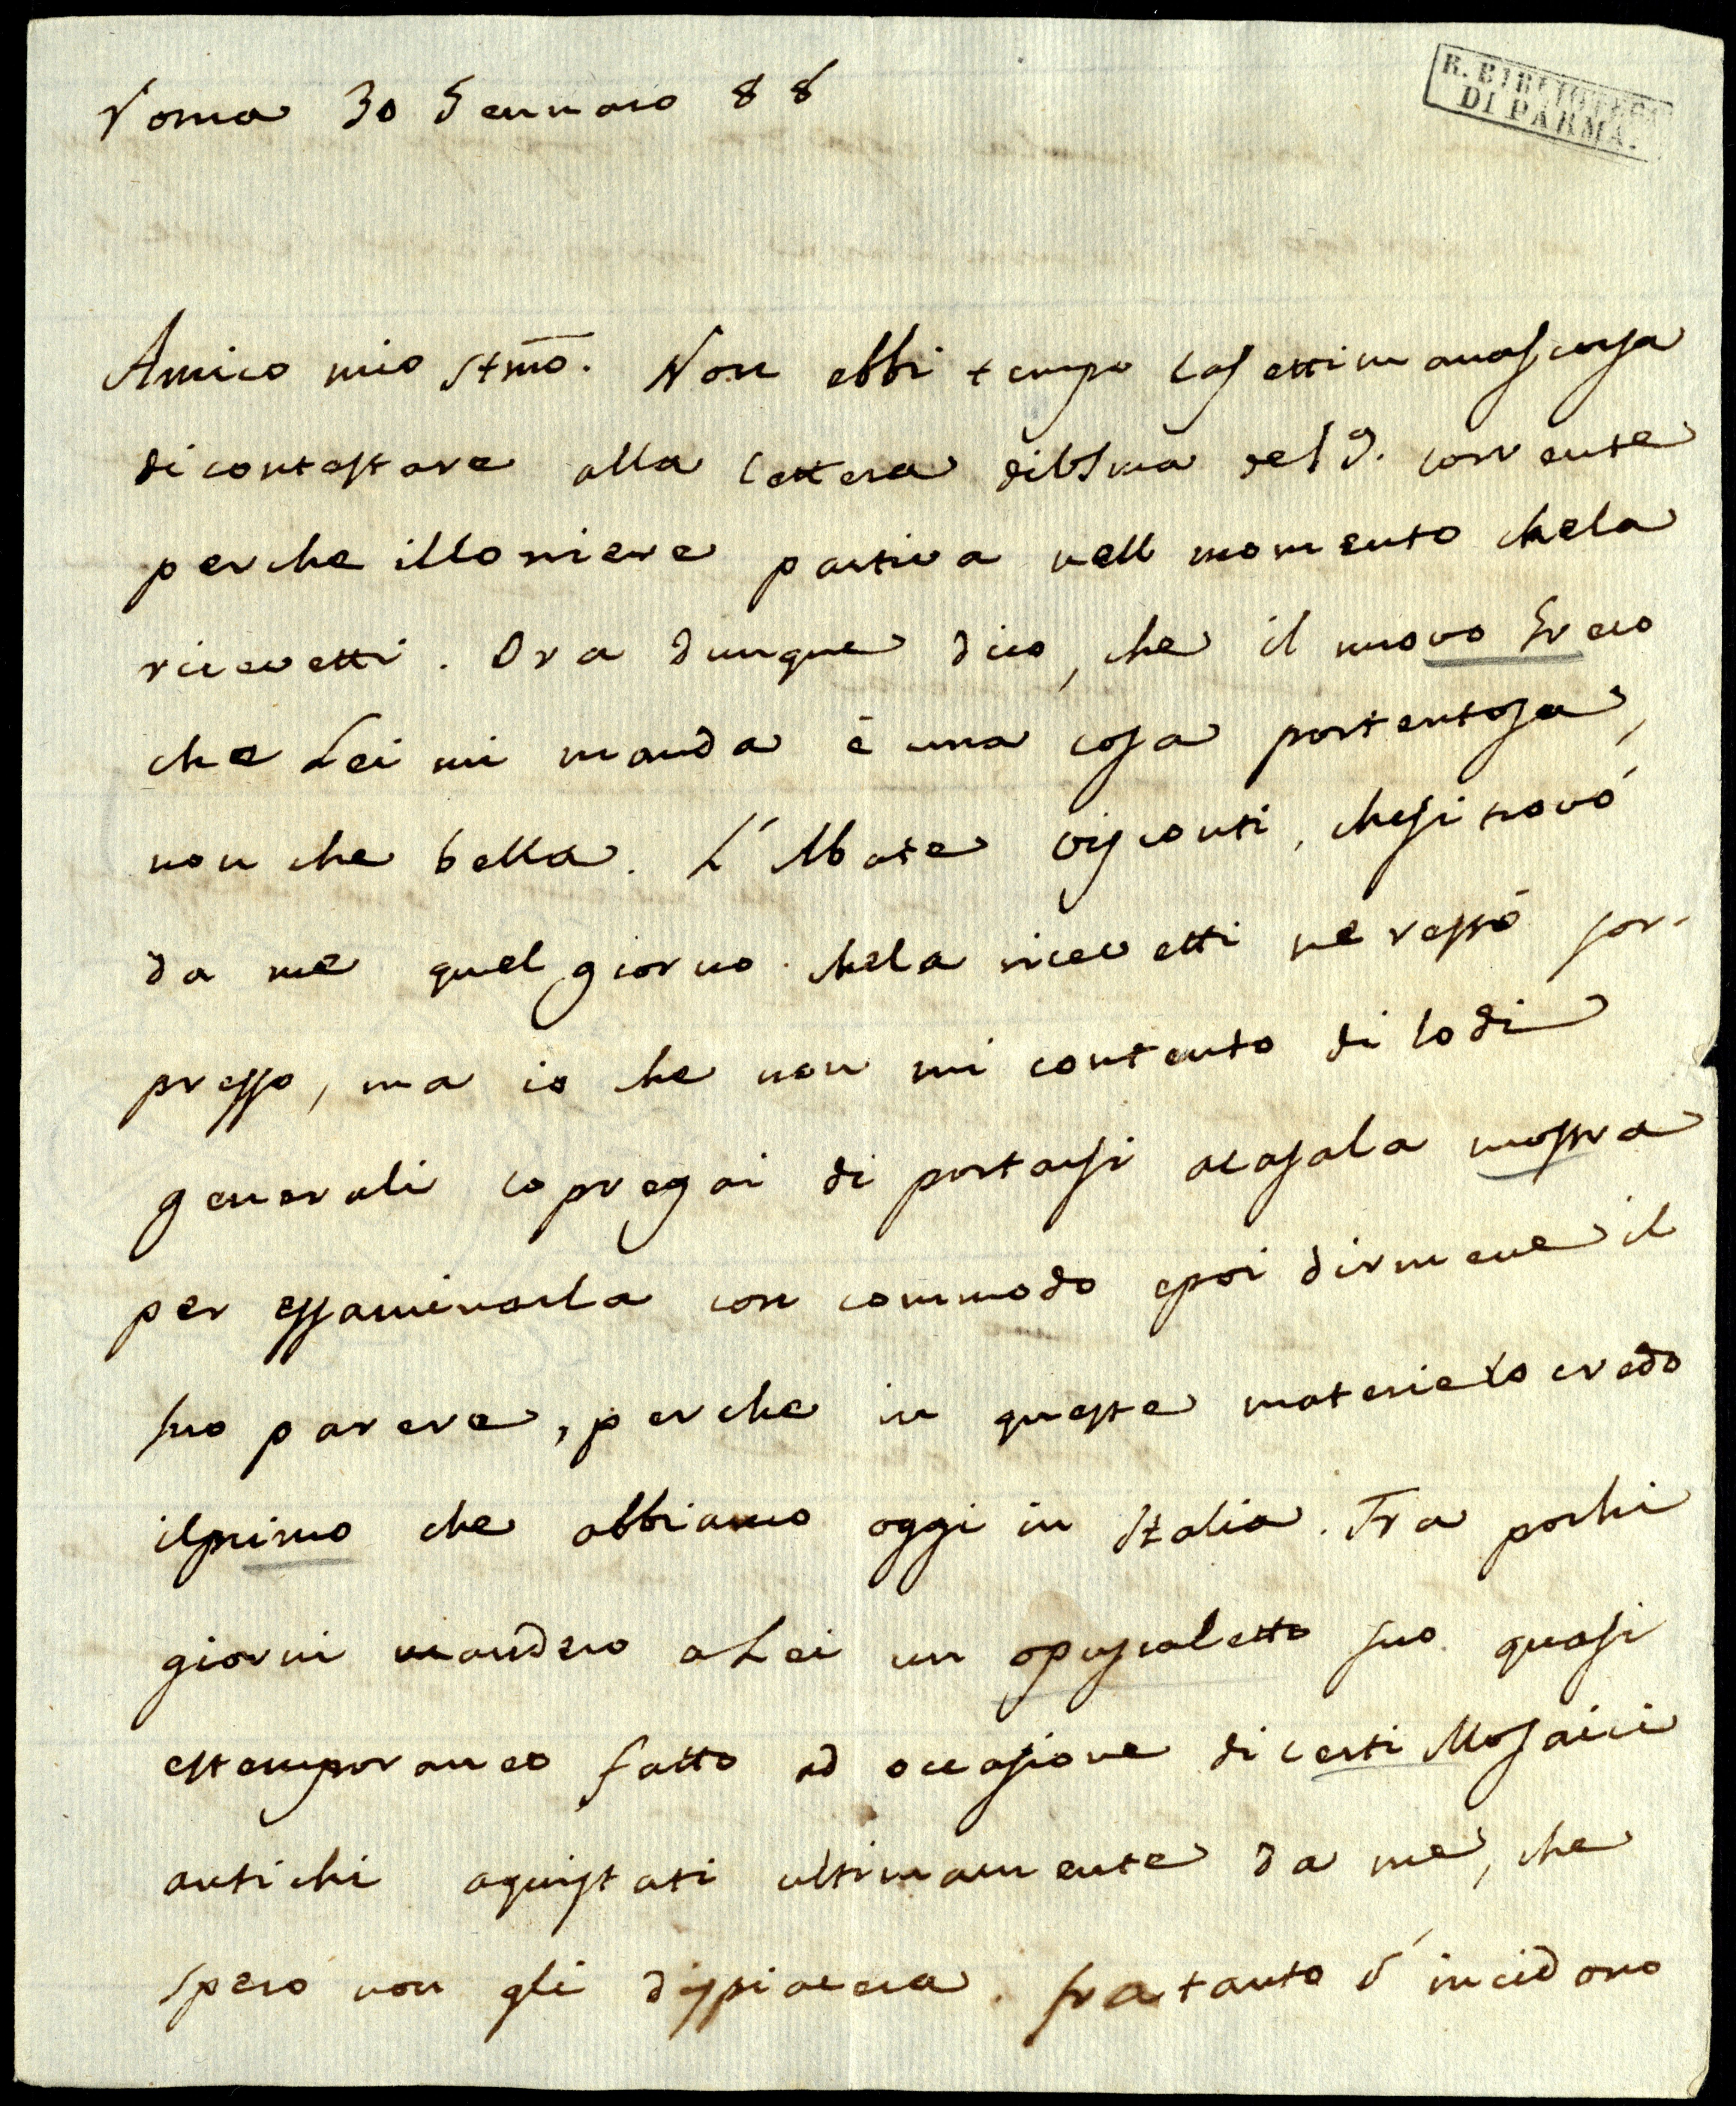 Roma 30 Gennaro 88
R. BIBLIOTECA
DI PARMA.
Amico mio Stmo. Non ebbi tempo la settimana scorsa
di contestare alla lettera di del 9. corrente
perche il loriere partiva nell momento che la
ricevetti. Ora dunque dico, che il nuovo Greco
che Lei mi manda è una cosa portentosa,
non che bella. L'Abate Visconti, che si trovó
da me quel giorno che la ricevetti ne restó sor-
presso, ma io che non mi contento di lodi
generali lo pregai di portarsi a casa la mostra
per essaminarla con commodo e poi dirmene il
suo parere, perche in queste materie lo credo
il primo che abbiamo oggi in Italia. Fra pochi
giorni mandero a Lei un opuscoletto suo quasi
estemporaneo fatto ad occasione di certi Mosaici
antichi aquistati ultimamente da me, che
spero non gli dispiacera. fratanto s'incidono